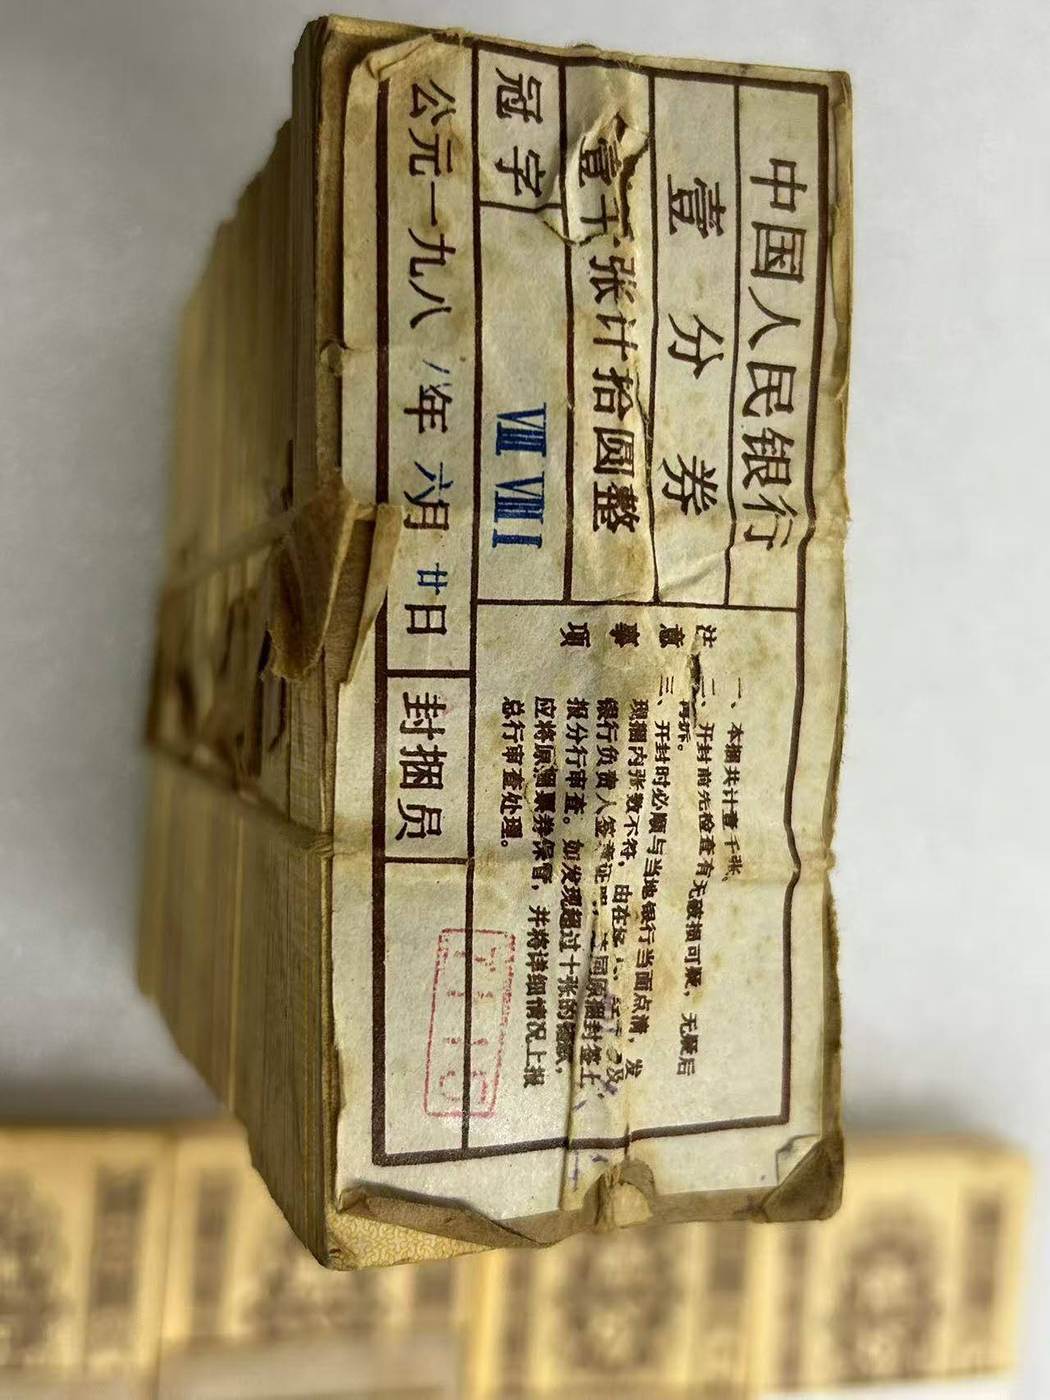 中国人民银行
壹分券
壹千张计拾圆整
冠字 VIII VIII I
公元一九八 八年 六月 廿日 封捆员
注意事项
一、本捆共计壹千张。
二、开封前先检查有无破损可疑，无疑后
再拆。
三、开封时必顺与当地银行当面点清，发
现捆内张数不符，由在场
银行负责人签章证明，连同原捆封签上
报分行审查。如发现超过十张的
应将原捆票券保管，并将详细情况上报
总行审查处理。